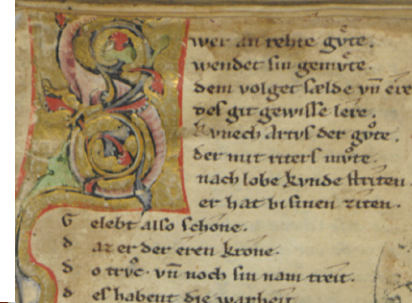 Swer an rehte gvͤte.
wendet sin gemvͤte.
dem volget sælde vn̄ ere
des git gewisse lere.
kvnech Artvs der gvͤte.
der mit riters mvͤte.
nach lobe kvnde striten.
er hat bi sinen ziten.
G elebt also schone.
d az er der eren krone.
d o trvͦc. vn̄ noch sin nam treit.
d es habent die warheit